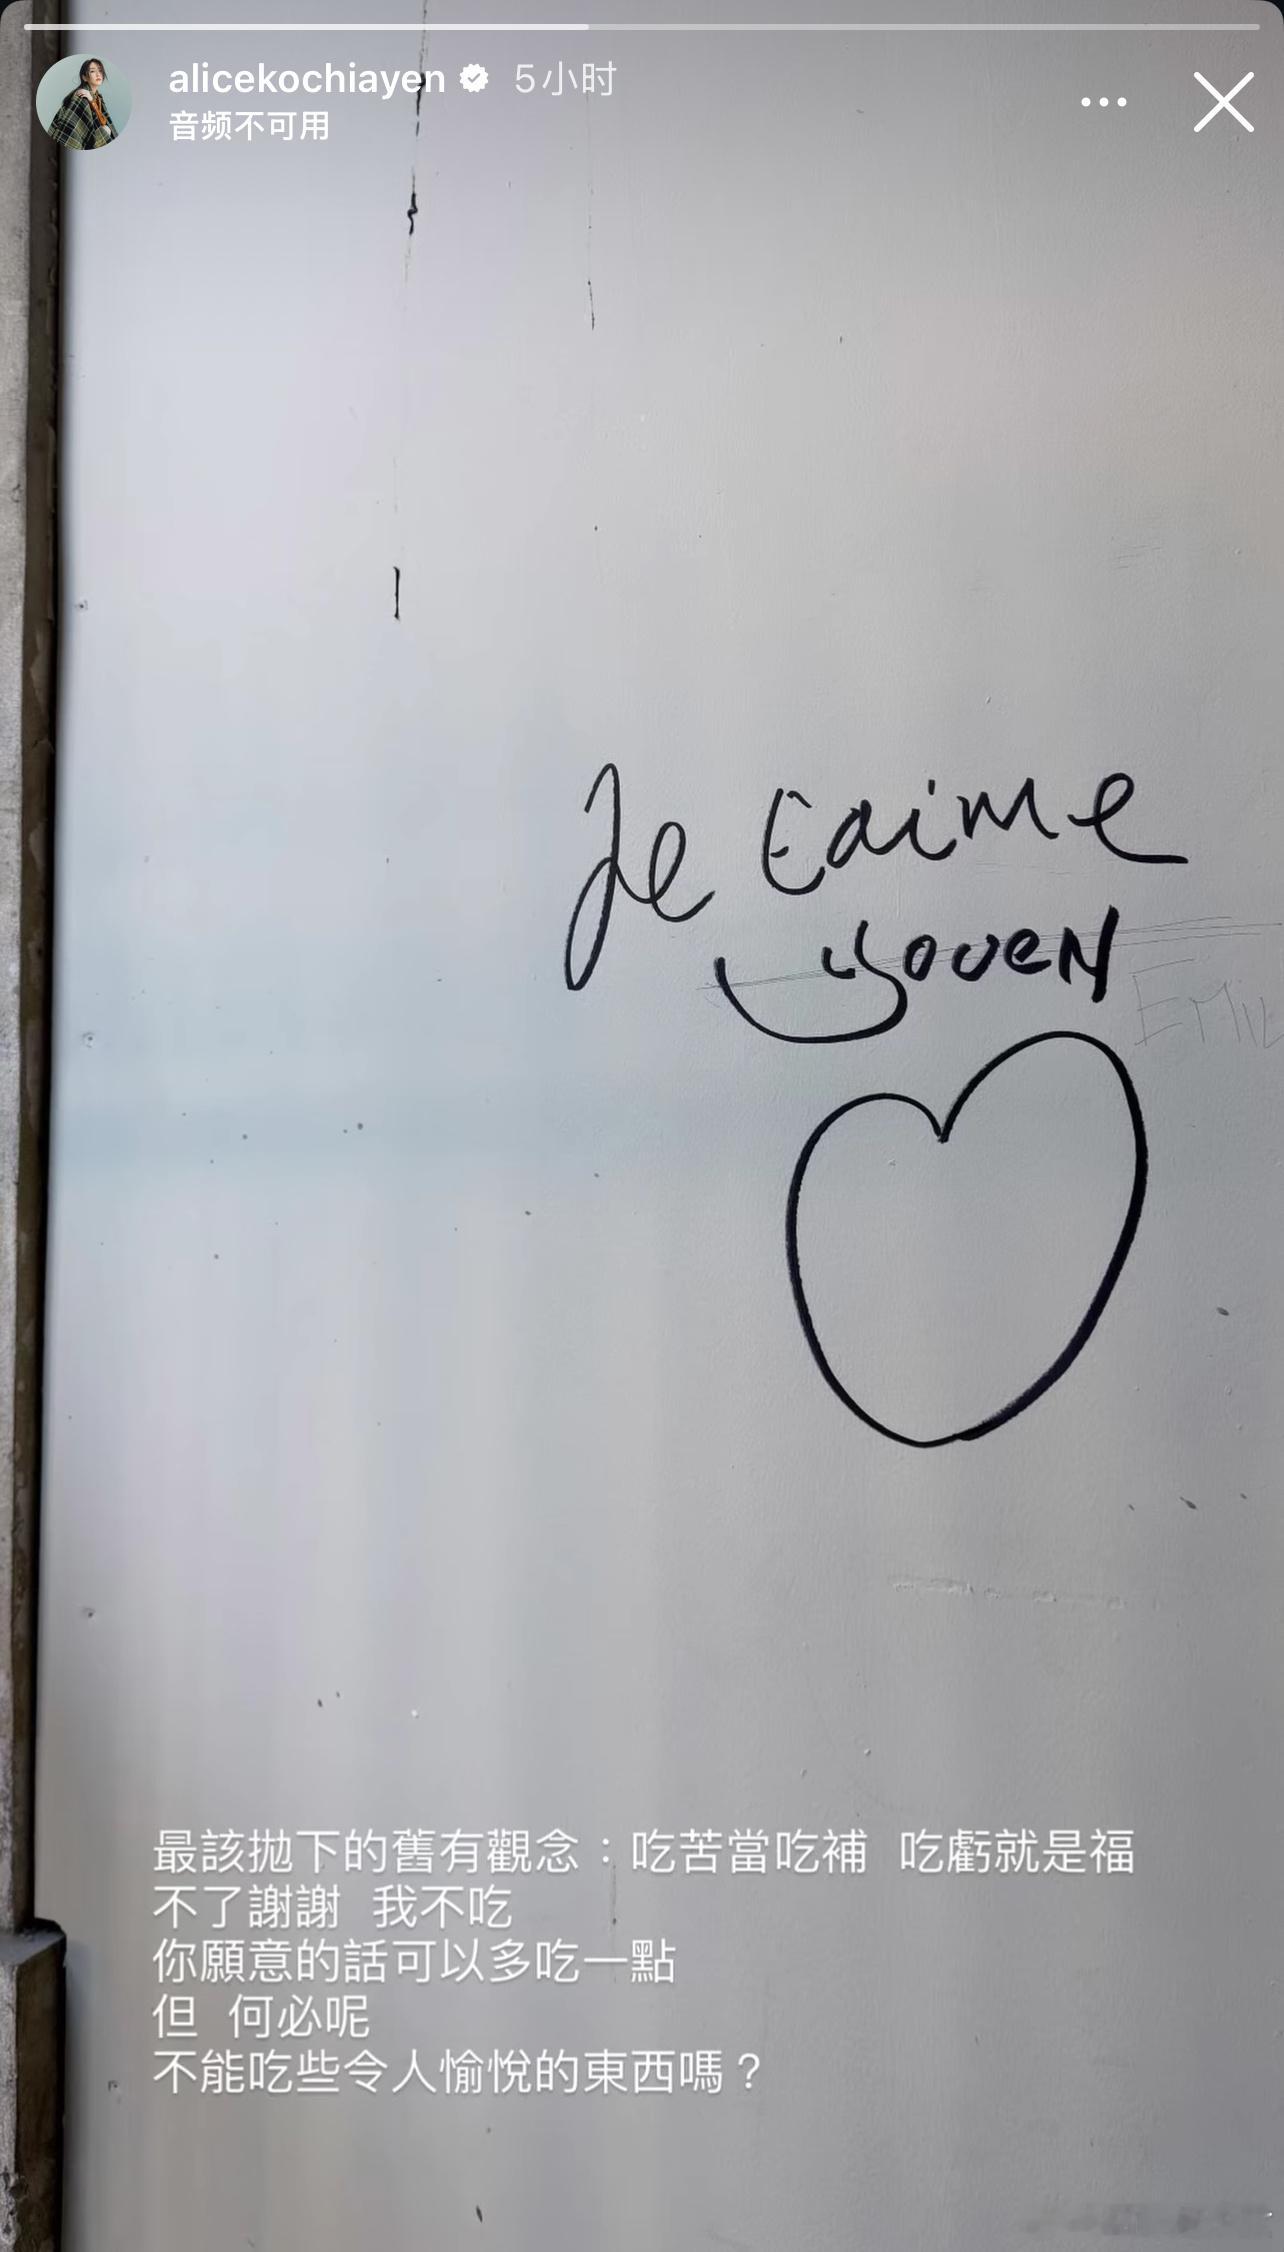 alicekochiayen 5小时
音频不可用
Je t'aime
youen
EMIL
最該拋下的舊有觀念：吃苦當吃補 吃虧就是福
不了謝謝 我不吃
你願意的話可以多吃一點
但 何必呢
不能吃些令人愉悅的東西嗎？